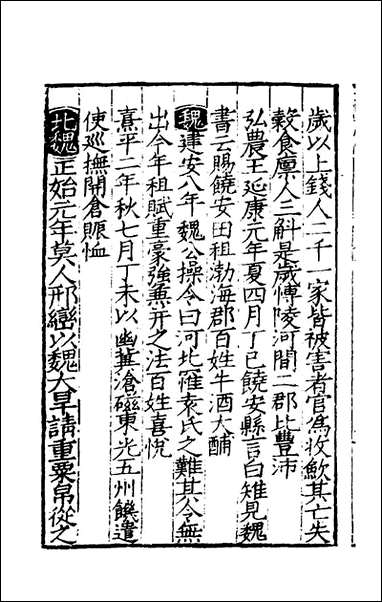 歲以上錢人二千一家皆被害者官爲收歛其亡失
穀食廪人三斛是歲愽陵河間二郡比豐沛
弘農王延康元年夏四月丁巳饒安縣言白雉見魏
書云賜饒安田租渤海郡百姓牛酒大酺
魏建安八年魏公操令曰河北罹袁氏之難其令無
出今年租賦重豪強兼并之法百姓喜恱
熹平二年秋七月丁未以幽冀滄磁東光五州饑遣
使廵撫開倉賑恤
北魏正始元年莫人邢巒以魏大旱請重粟帛從之